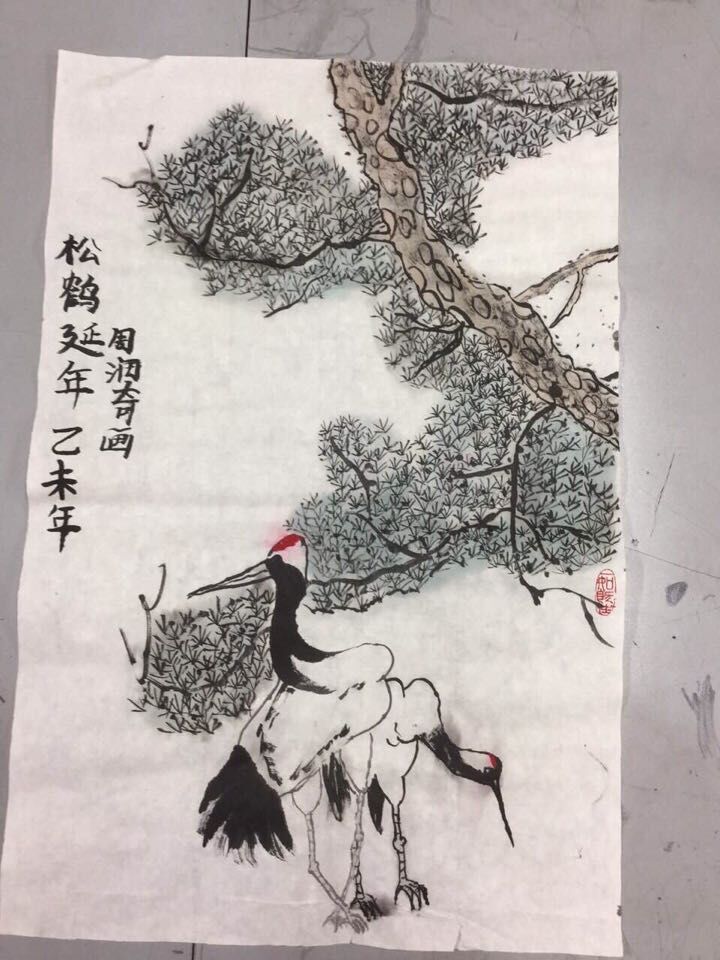 松鹤延年 乙未年
周润奇画